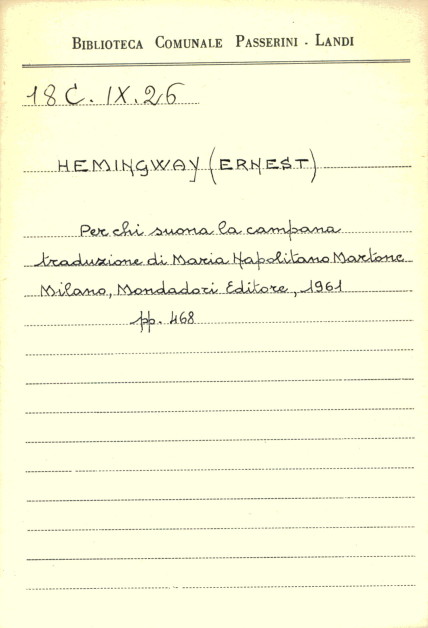 BIBLIOTECA COMUNALE PASSERINI - LANDI
18 C. IX. 26
HEMINGWAY (ERNEST)
Per chi suona la campana
traduzione di Maria Napolitano Martone
Milano, Mondadori Editore, 1961
pp. 468